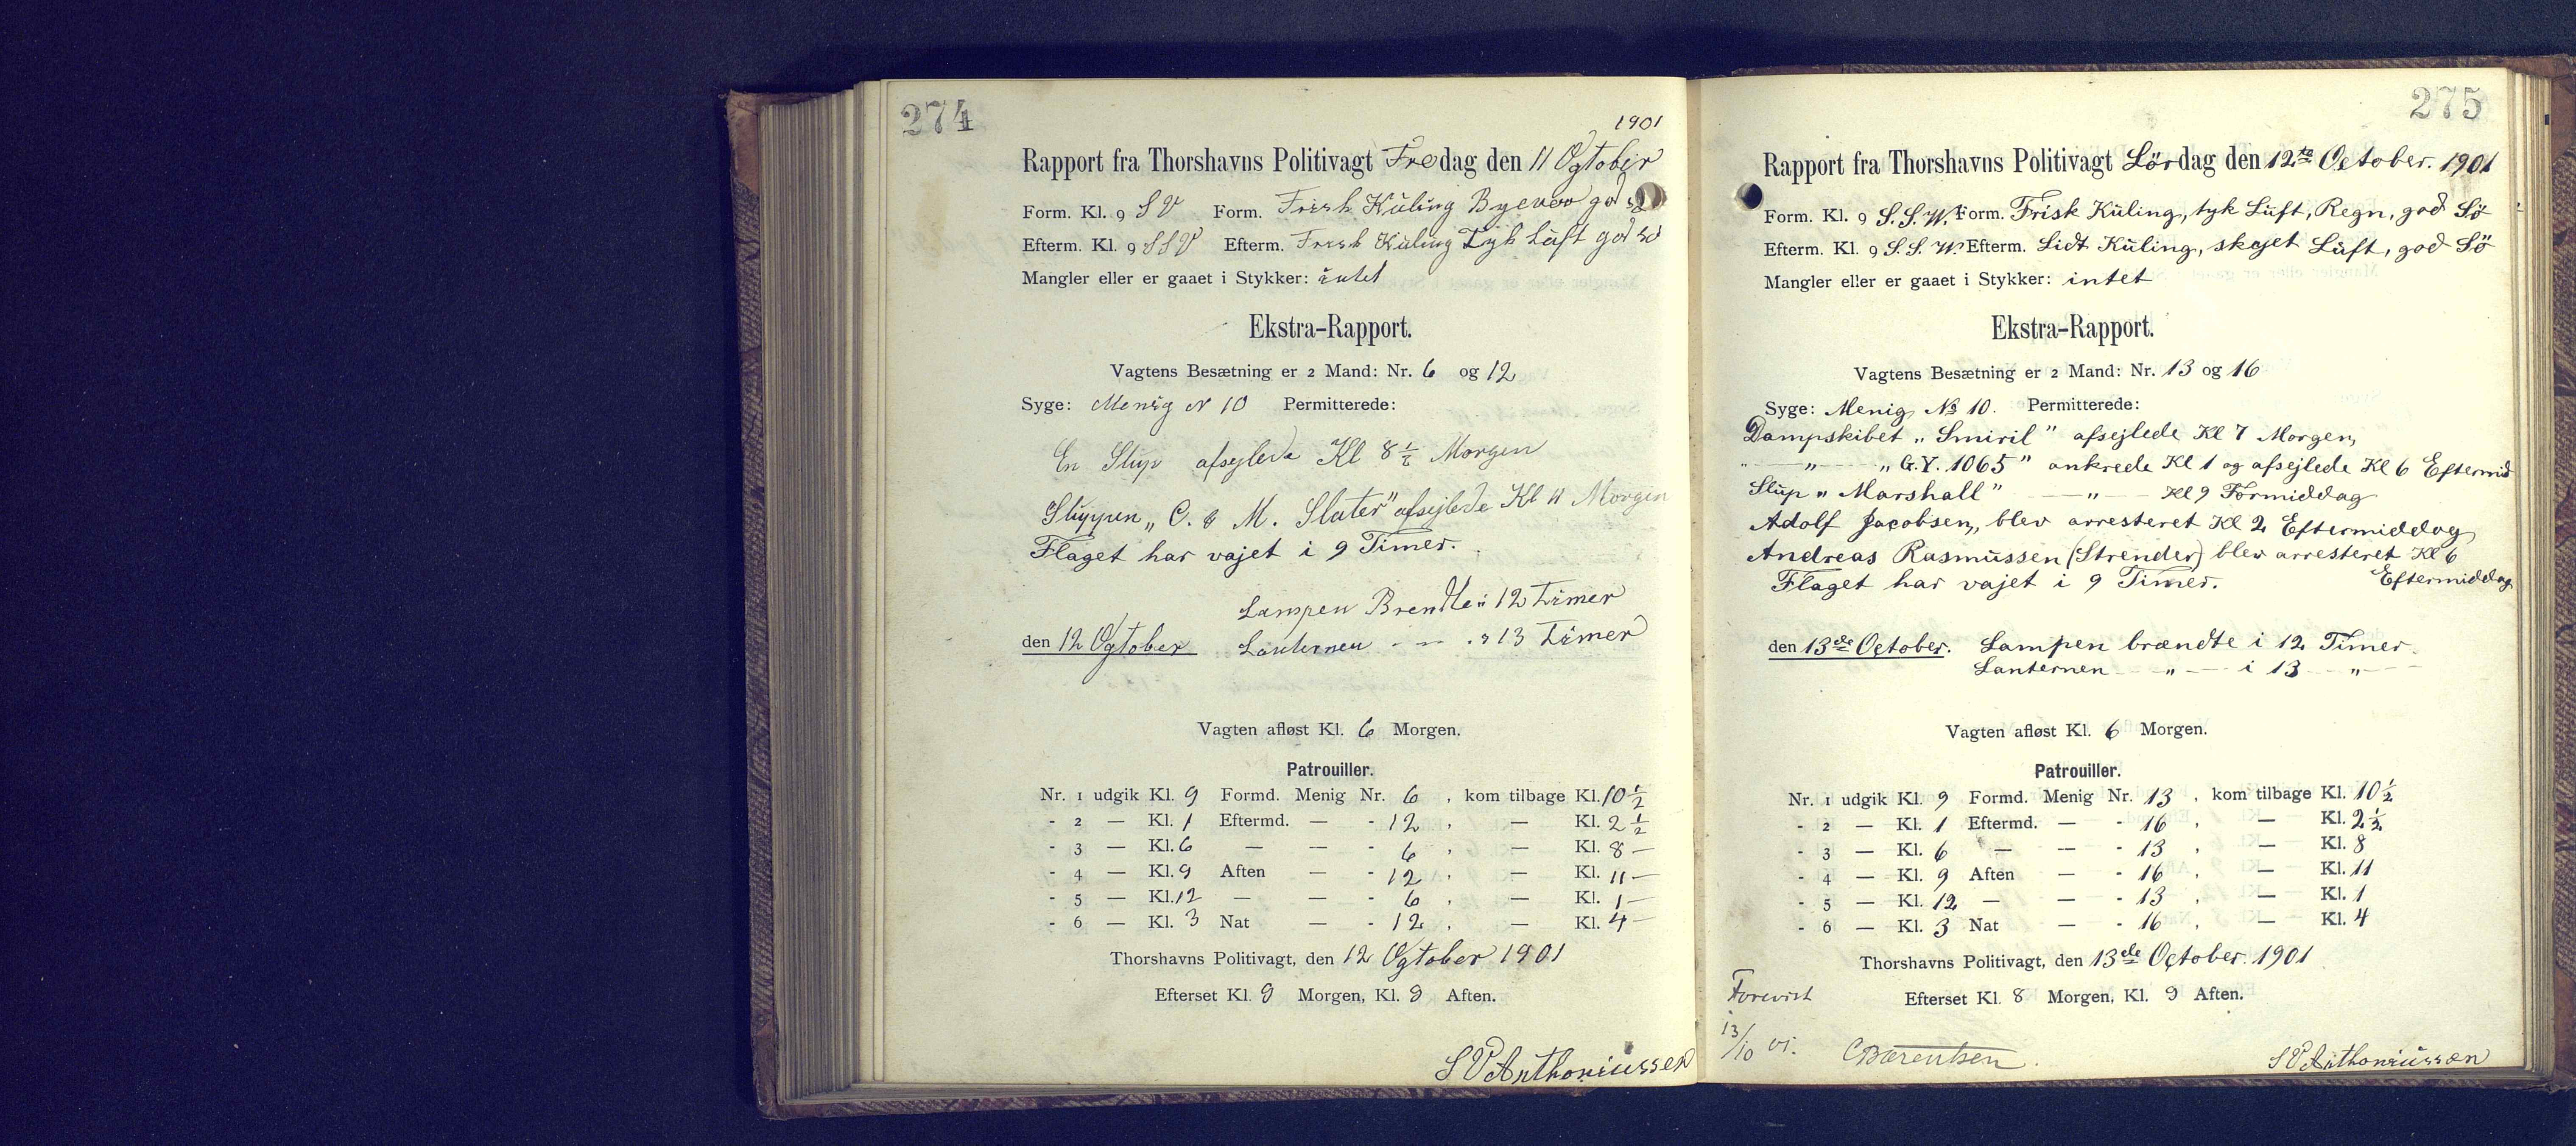 274
1901
Rapport fra Thorshavns Politivagt Fredag den 11 Ogtober
Form. Kl. 9 SV Form. Frisk Kuling Byeveir god sö
Efterm. Kl. 9 SSV Efterm. Frisk Kuling Tyk Luft god sö
Mangler eller er gaaet i Stykker: intet
Ekstra-Rapport.
Vagtens Besætning er 2 Mand: Nr. 6 og 12
Syge: Menig N 10 Permitterede:
En Slup afsejlede Kl 8 1/2 Morgen
Sluppen „C. & M. Slater" afsejlede Kl 11 Morgen
Flaget har vajet i 9 Timer.
Lampen Brendte i 12 Timer
den 12 Ogtober Lanternen — — " 13 Timer
Vagten afløst Kl. 6 Morgen.
Patrouiller.
Nr. 1 udgik Kl. 9 Formd. Menig Nr. 6 , kom tilbage Kl. 10 1/2
- 2 — Kl. 1 Eftermd. — - 12 , — Kl. 2 1/2
- 3 — Kl. 6 — — - 6 , — Kl. 8 —
- 4 — Kl. 9 Aften — - 12 , — Kl. 11 —
- 5 — Kl. 12 — — - 6 , — Kl. 1 —
- 6 — Kl. 3 Nat — - 12 , — Kl. 4 —
Thorshavns Politivagt, den 12 Ogtober 1901
Efterset Kl. 9 Morgen, Kl. 9 Aften.
S V Anthoniussen
275
Rapport fra Thorshavns Politivagt Lördag den 12te October. 1901
Form. Kl. 9 S.S.W. Form. Frisk Kuling, tyk Luft, Regn, god Sö
Efterm. Kl. 9 S.S.W. Efterm. Lidt Kuling, skyet Luft, god Sö
Mangler eller er gaaet i Stykker: intet
Ekstra-Rapport.
Vagtens Besætning er 2 Mand: Nr. 13 og 16
Syge: Menig No 10. Permitterede:
Dampskibet „Smiril" afsejlede Kl 7 Morgen,
— " — „G.Y. 1065" ankrede Kl 1 og afsejlede Kl 6 Eftermid
Slup „Marshall" — " — Kl 9 Formiddag
Adolf Jacobsen, blev arresteret Kl 2 Eftermiddag
Andreas Rasmussen (Strender) blev arresteret Kl 6
Eftermiddag
Flaget har vajet i 9 Timer.
den 13de October. Lampen brændte i 12 Timer.
Lanternen — " — i 13 — " —
Vagten afløst Kl. 6 Morgen.
Patrouiller.
Nr. 1 udgik Kl. 9 Formd. Menig Nr. 13 , kom tilbage Kl. 10 1/2
- 2 — Kl. 1 Eftermd. — - 16 , — Kl. 2 1/2
- 3 — Kl. 6 — — - 13 , — Kl. 8
- 4 — Kl. 9 Aften — - 16 , — Kl. 11
- 5 — Kl. 12 — — - 13 , — Kl. 1
- 6 — Kl. 3 Nat — - 16 , — Kl. 4
Thorshavns Politivagt, den 13de October. 1901
Forevist Efterset Kl. 8 Morgen, Kl. 9 Aften.
13/10 01. CBærentsen. S V Anthoniussen